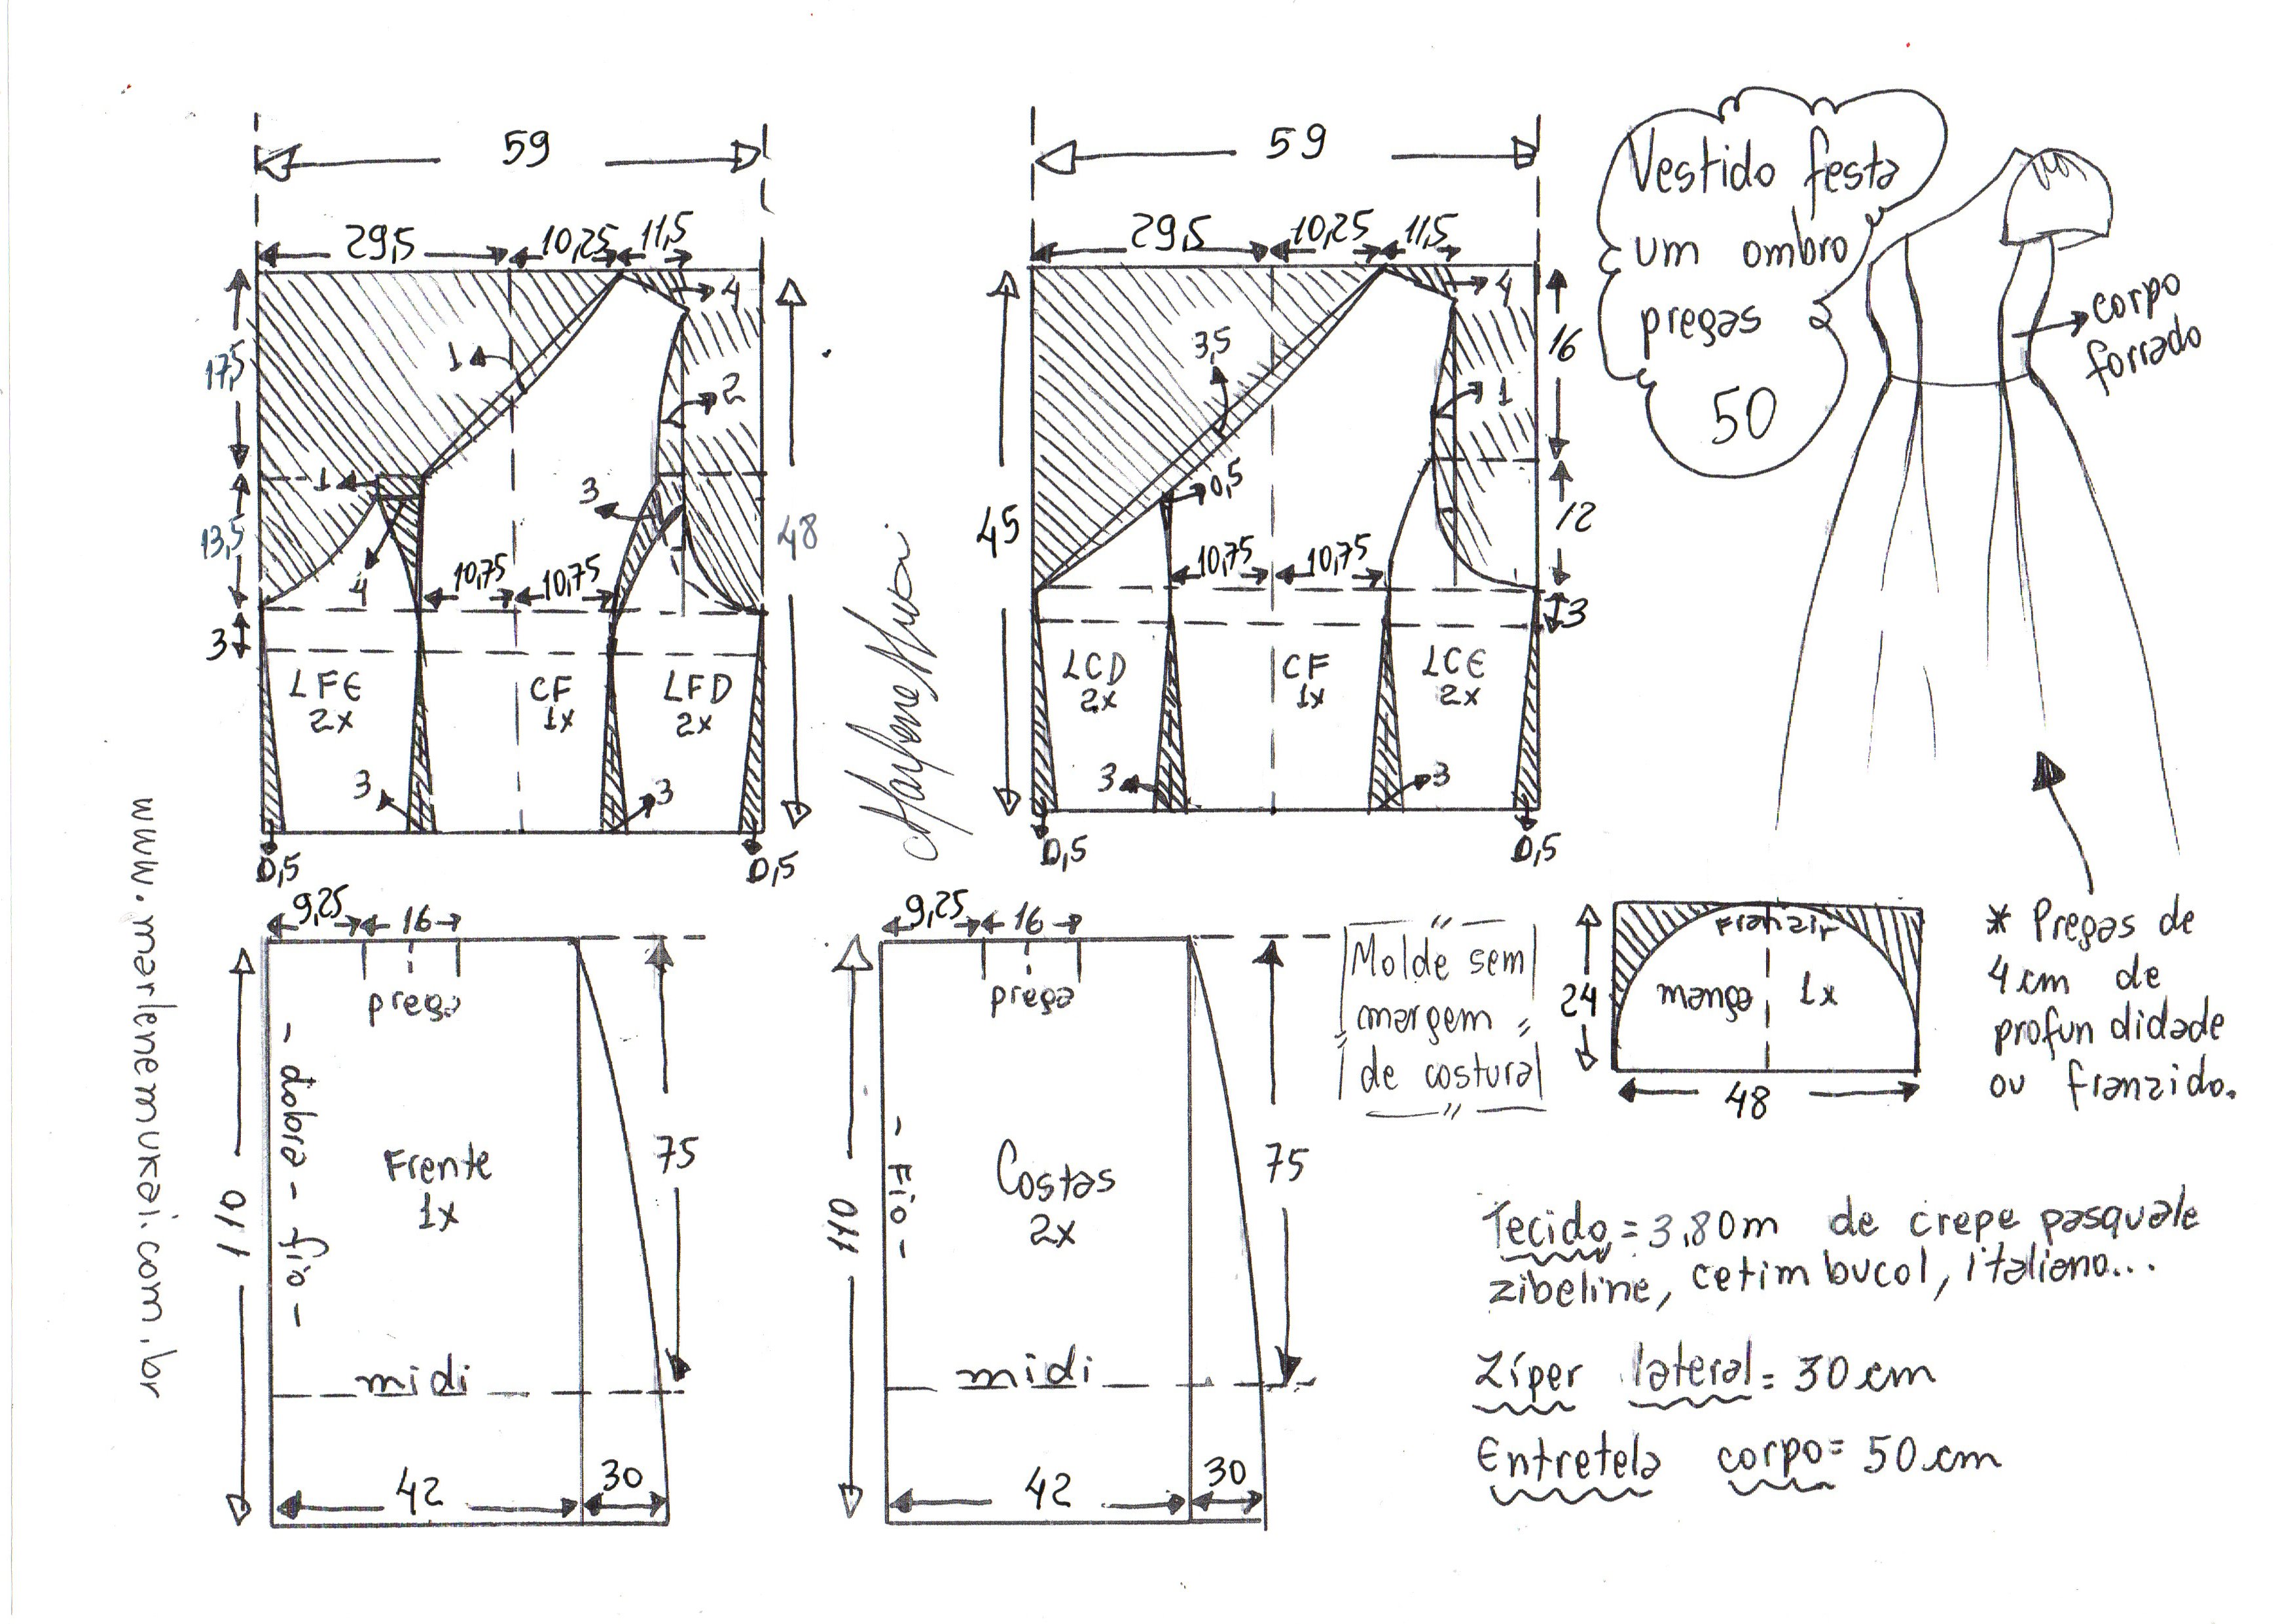 59
29,5
10,25
11,5
4
17,5
1
2
1
3
13,5
4
10,75
10,75
48
3
LFE
2x
CF
1x
LFD
2x
3
3
0,5
0,5
59
29,5
10,25
11,5
4
3,5
1
16
0,5
12
45
10,75
10,75
3
LCD
2x
CF
1x
LCE
2x
3
3
0,5
0,5
Vestido festa
um ombro
pregas
50
corpo
forrado
www.marlenemukai.com.br
9,25
16
prega
- dobra - fio -
110
Frente
1x
75
midi
42
30
9,25
16
prega
- Fio -
110
Costas
2x
75
midi
42
30
Molde sem
margem
de costura
Franzir
manga 1x
24
48
* Pregas de
4 cm de
profundidade
ou franzido.
Tecido = 3,80m de crepe pasquale
zibeline, cetim bucol, italiano...
Zíper lateral = 30 cm
Entretela corpo = 50 cm